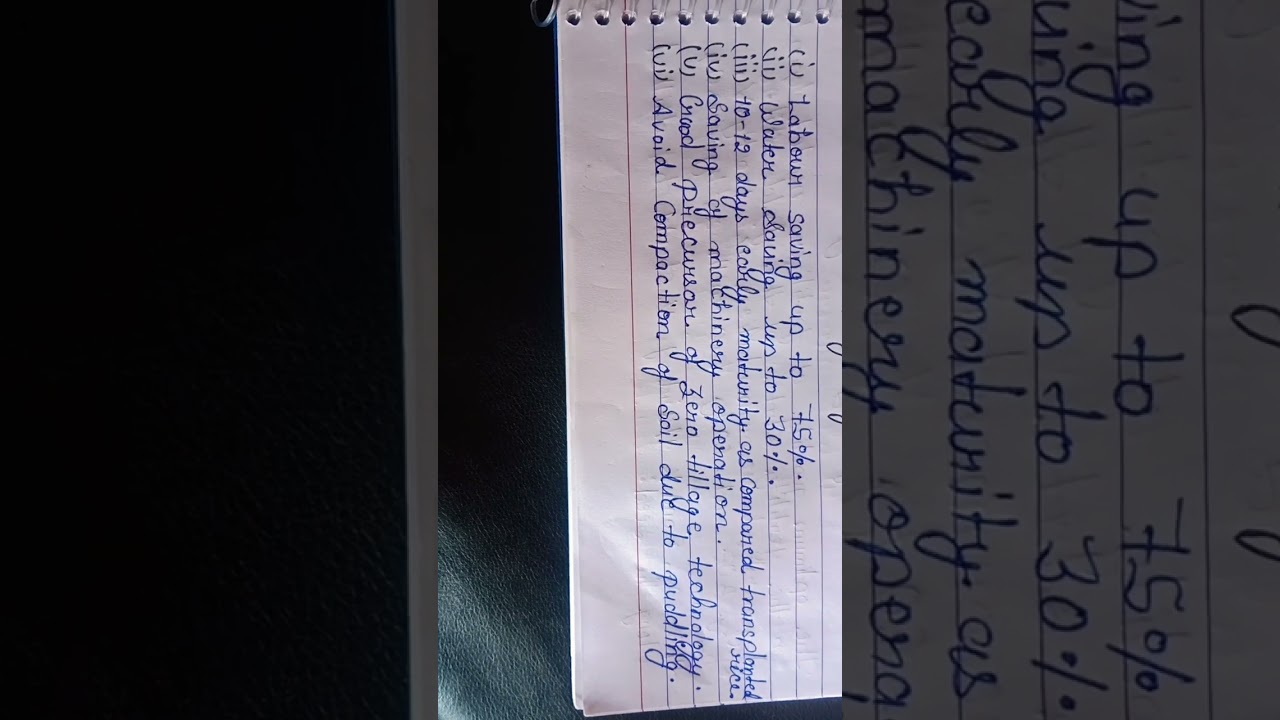 (i) Labour saving up to 75%.
(ii) Water saving up to 30%.
(iii) 10-12 days early maturity as compared transplanted
rice.
(iv) Saving of machinery operation.
(v) Good precursor of zero tillage technology.
(vi) Avoid Compaction of Soil due to puddling.
ving up to 75%
ving up to 30%
early maturity as
machinery opera